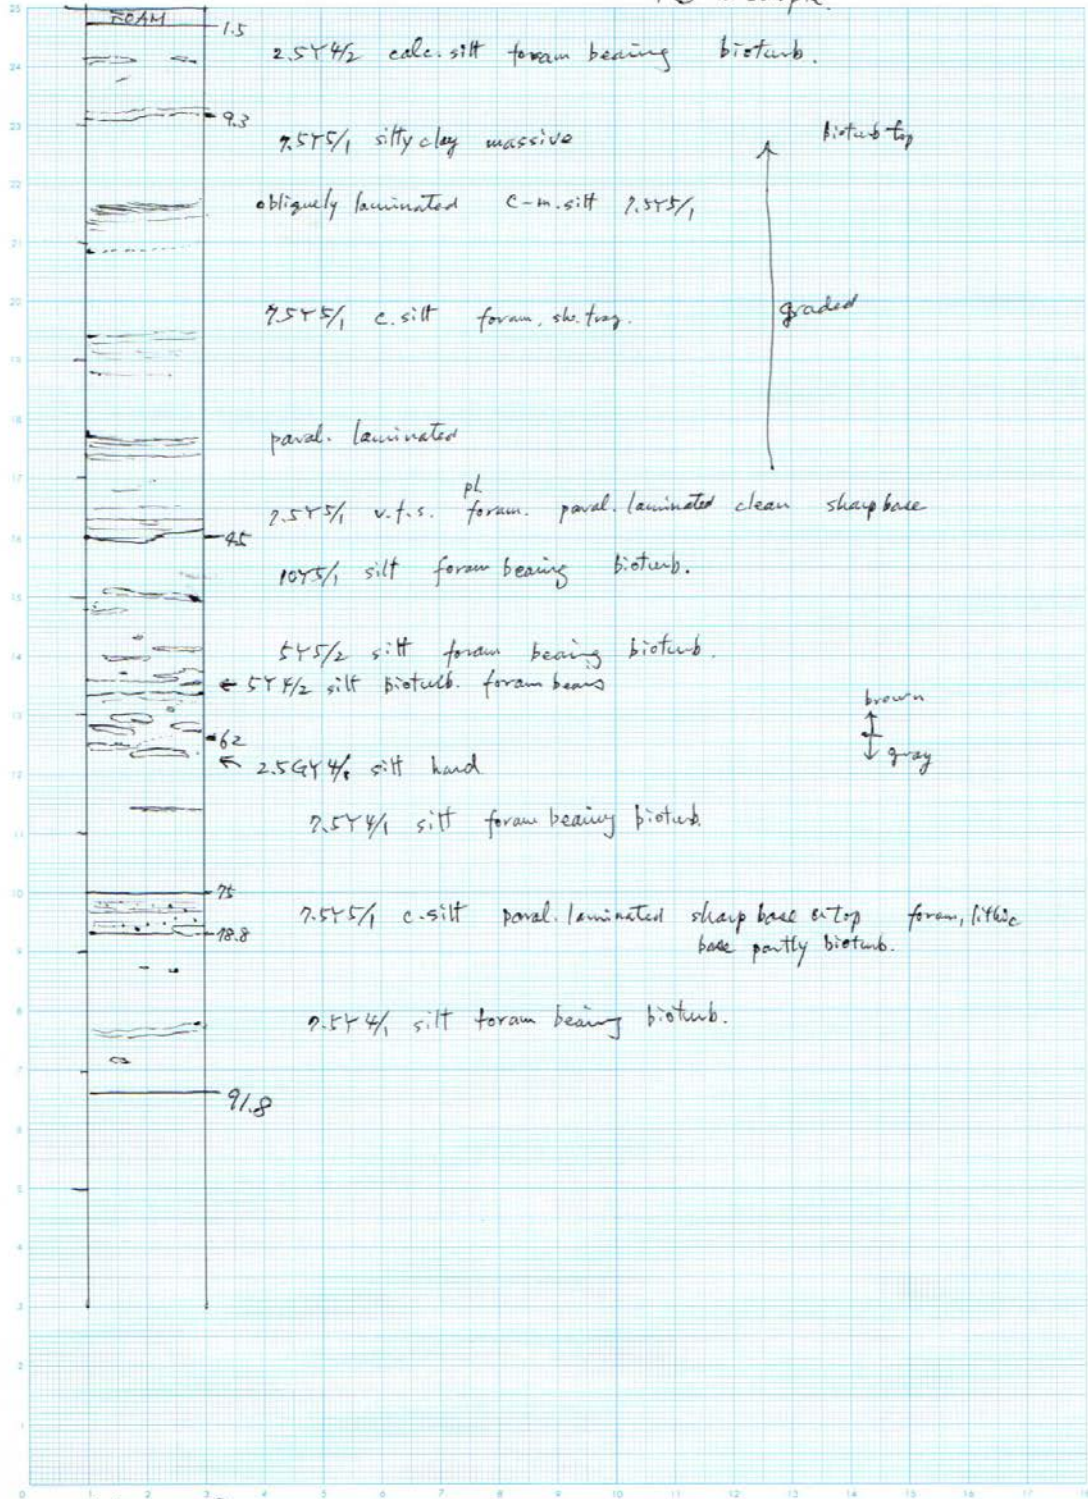 FOAM
1.5
2.5Y4/2 calc. silt foram bearing bioturb.
9.3
7.5Y5/1 silty clay massive
bioturb top
obliquely laminated c-m. silt 7.5Y5/1
7.5Y5/1 c. silt foram, sh. frag.
graded
paral. laminated
pl.
7.5Y5/1 v.f.s. foram. paral. laminated clean sharp base
45
10Y5/1 silt foram bearing bioturb.
5Y5/2 silt foram bearing bioturb.
← 5Y4/2 silt bioturb. foram bears
brown
62
gray
← 2.5GY4/1 silt hard
7.5Y4/1 silt foram bearing bioturb.
75
7.5Y5/1 c. silt paral. laminated sharp base & top foram, lithic
78.8
base partly bioturb.
7.5Y4/1 silt foram bearing bioturb.
91.8
25
24
23
22
21
20
19
18
17
16
15
14
13
12
11
10
9
8
7
6
5
4
3
2
1
0 1 2 3 4 5 6 7 8 9 10 11 12 13 14 15 16 17